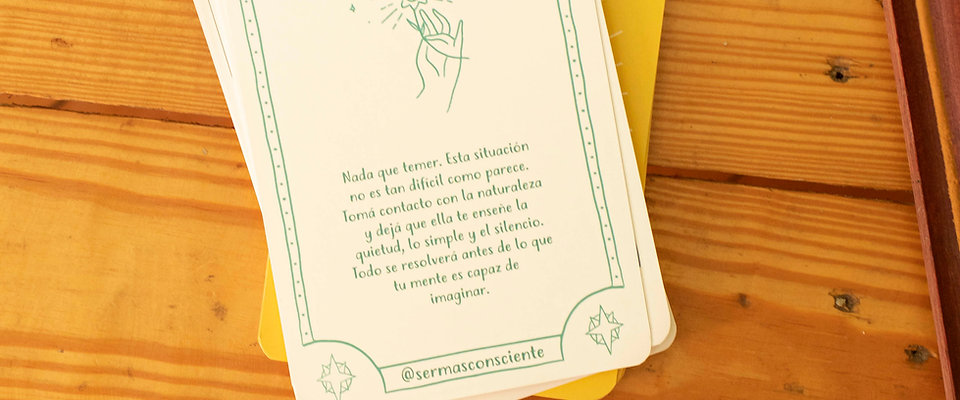 Nada que temer. Esta situación
no es tan difícil como parece.
Tomá contacto con la naturaleza
y dejá que ella te enseñe la
quietud, lo simple y el silencio.
Todo se resolverá antes de lo que
tu mente es capaz de
imaginar.
@sermasconsciente